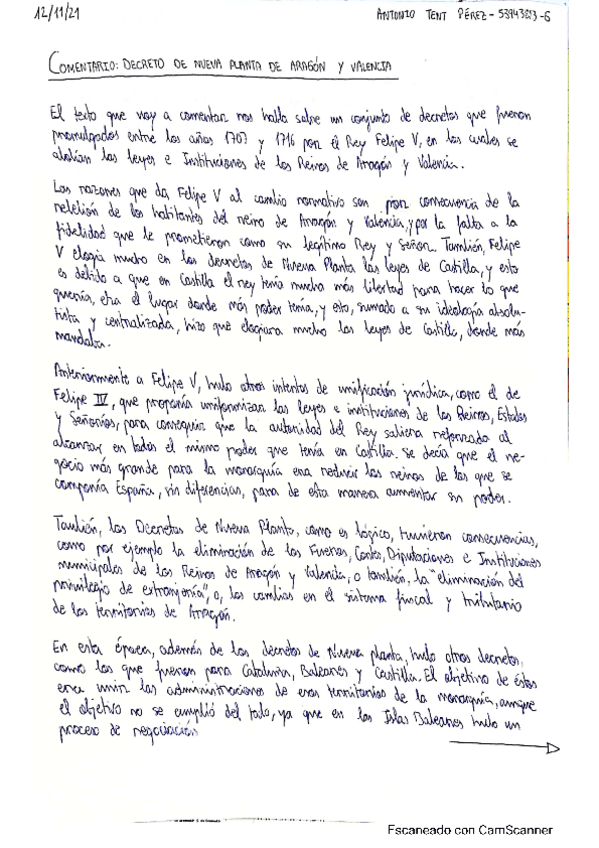 12/11/21
ANTONIO TENT PÉREZ - 53943853-G
COMENTARIO: DECRETO DE NUEVA PLANTA DE ARAGÓN Y VALENCIA
El texto que voy a comentar nos habla sobre un conjunto de decretos que fueron
promulgados entre los años 1707 y 1716 por el Rey Felipe V, en los cuales se
abolían las leyes e Instituciones de los Reinos de Aragón y Valencia.
Las razones que da Felipe V al cambio normativo son por consecuencia de la
rebelión de los habitantes del reino de Aragón y Valencia, y por la falta a la
fidelidad que le prometieron como su legítimo Rey y Señor. También, Felipe
V elogia mucho en los decretos de Nueva Planta las leyes de Castilla, y esto
es debido a que en Castilla el rey tenía mucho más libertad para hacer lo que
quería, era el lugar donde más poder tenía, y esto, sumado a su ideología absolu-
tista y centralizada, hizo que elogiara mucho las leyes de Castilla, donde más
mandaba.
Anteriormente a Felipe V, hubo otros intentos de unificación jurídica, como el de
Felipe IV, que proponía uniformizar las leyes e instituciones de los Reinos, Estados
y Señoríos, para conseguir que la autoridad del Rey saliera reforzada al
alcanzar en todos el mismo poder que tenía en Castilla. Se decía que el ne-
gocio más grande para la monarquía era reducir los reinos de los que se
componía España, sin diferencias, para de esta manera aumentar su poder.
También, los Decretos de Nueva Planta, como es lógico, tuvieron consecuencias,
como por ejemplo la eliminación de los Fueros, Cortes, Diputaciones e Instituciones
municipales de los Reinos de Aragón y Valencia, o también, la "eliminación del
privilegio de extranjería", o, los cambios en el sistema fiscal y tributario
de los territorios de Aragón.
En esta época, además de los decretos de Nueva planta, hubo otros decretos,
como los que fueron para Cataluña, Baleares y Castilla. El objetivo de éstos
era unir las administraciones de esos territorios de la monarquía, aunque
el objetivo no se cumplió del todo, ya que en las Islas Baleares hubo un
proceso de negociación
Escaneado con CamScanner